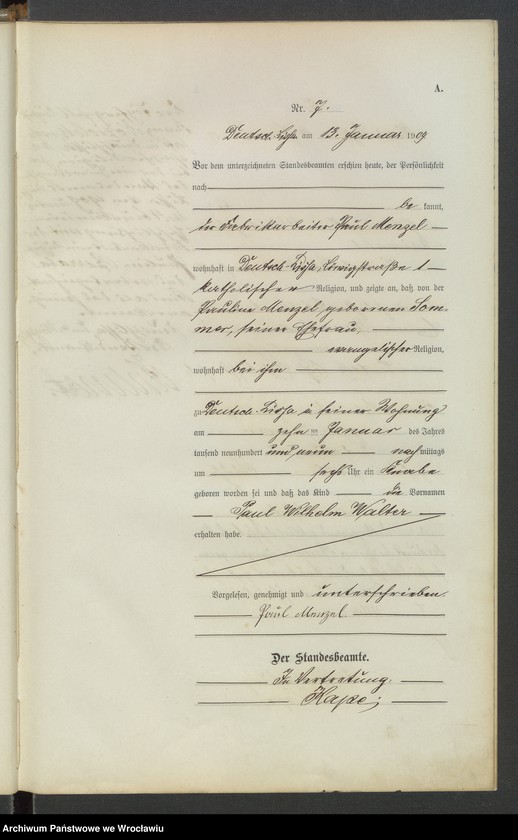 A.
Nr. 7.
Deutsch-Lissa am 13. Januar 1909
Vor dem unterzeichneten Standesbeamten erschien heute, der Persönlichkeit
nach
be kannt,
der Fabrikarbeiter Paul Menzel
wohnhaft in Deutsch-Lissa, 1
katholischer Religion, und zeigte an, daß von der
Pauline Menzel geborenen Som-
mer, seiner Ehefrau,
evangelischer Religion,
wohnhaft bei ihm
zu Deutsch-Lissa in seiner Wohnung
am zehnten Januar des Jahres
tausend neunhundert und neun nach mittags
um sechs Uhr ein Knabe
geboren worden sei und daß das Kind die Vornamen
Paul Wilhelm Walter
erhalten habe.
Vorgelesen, genehmigt und unterschrieben.
Paul Menzel
Der Standesbeamte.
In Vertretung.
Archiwum Państwowe we Wrocławiu